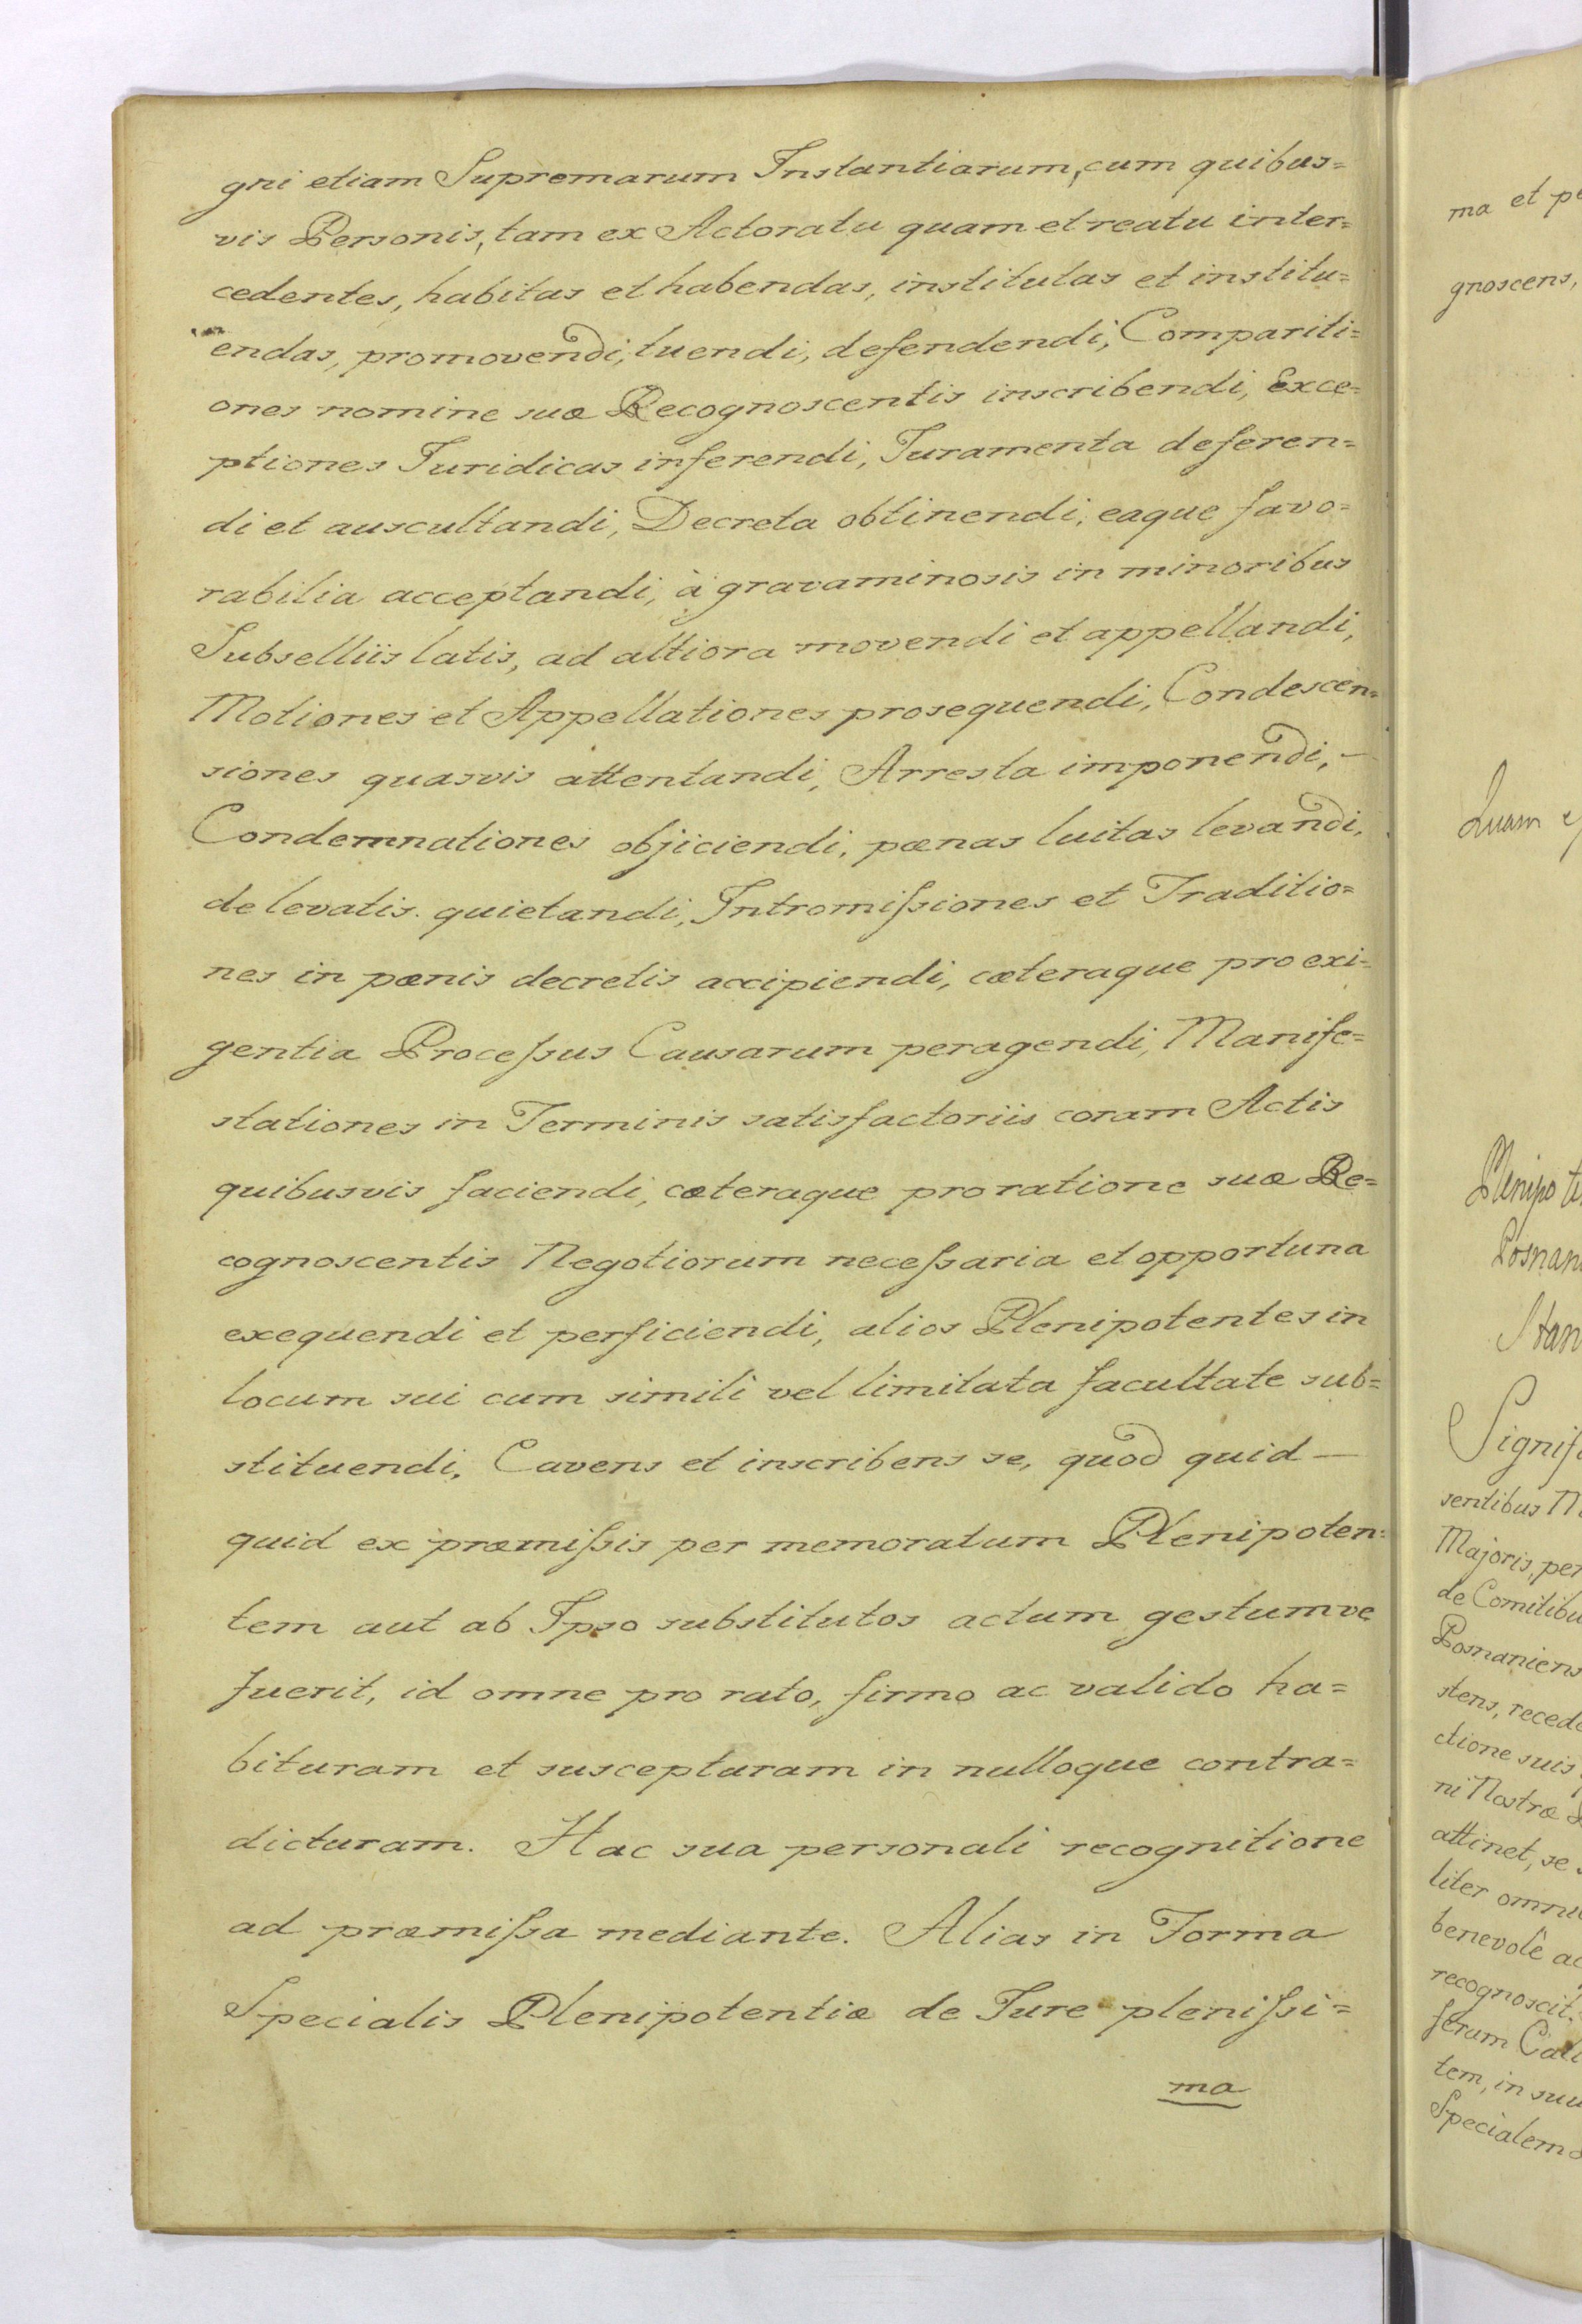 gni etiam Supremarum Instantiarum, cum quibus=
vis Personis, tam ex Actoratu quam et reatu inter=
cedentes, habitas et habendas, institutas et institu=
endas, promovendi, tuendi, defendendi, Compariti=
ones nomine suæ Recognoscentis inscribendi, Exce=
ptiones Juridicas inferendi, Juramenta deferen=
di et auscultandi, Decreta obtinendi, eaque favo=
rabilia acceptandi, à gravaminosis in minoribus
Subselliis latis, ad altiora movendi et appellandi,
Motiones et Appellationes prosequendi, Condescen=
siones quasvis attentandi, Arresta imponendi, —
Condemnationes objiciendi, pœnas luitas levandi,
de levatis quietandi, Intromissiones et Traditio=
nes in pœnis decretis accipiendi, cæteraque pro exi=
gentia Processus Causarum peragendi, Manife=
stationes in Terminis satisfactoriis coram Actis
quibusvis faciendi, cæteraque pro ratione suæ Re=
cognoscentis Negotiorum necessaria et opportuna
exequendi et perficiendi, alios Plenipotentes in
locum sui cum simili vel limitata facultate sub=
stituendi, Cavens et inscribens se, quod quid —
quid ex præmissis per memoratum Plenipoten=
tem aut ab Ipso substitutos actum gestumve
fuerit, id omne pro rato, firmo ac valido ha=
bituram et suscepturam in nulloque contra=
dicturam. Hac sua personali recognitione
ad præmissa mediante. Alias in Forma
Specialis Plenipotentiæ de Jure plenissi=
ma
ma et
gnoscens,
Quam
sentibus
Majoris, per
stens,
ctione suis
ni Nostræ
attinet, se
liter
benevolè
recognoscit.
tem, in
Specialem